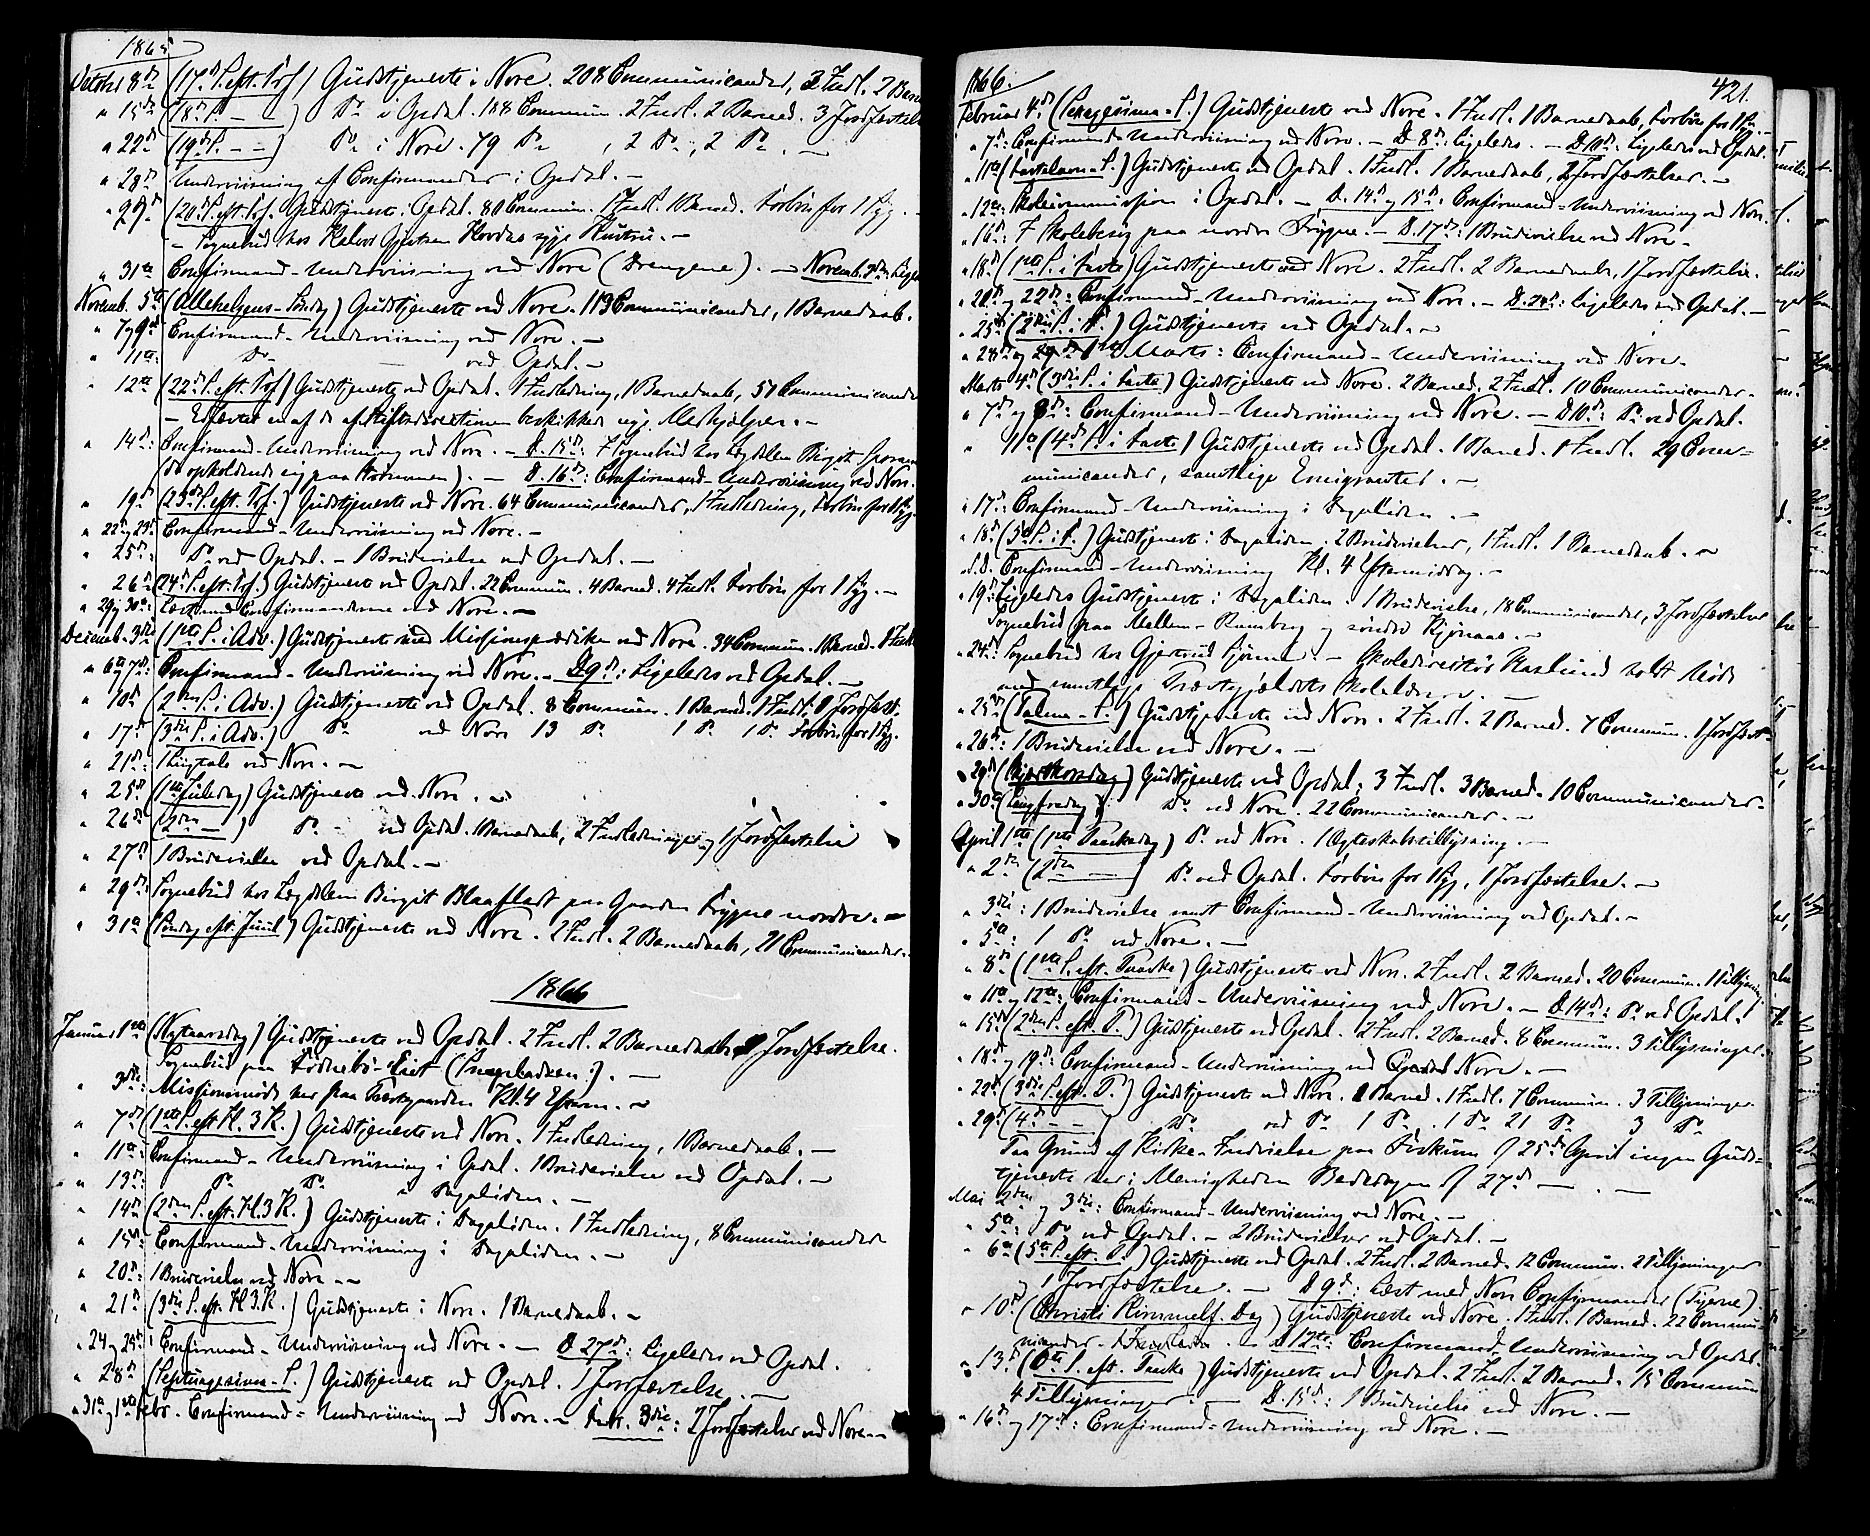 1865
October 8de (17de S. eft. Trf.) Gudstjeneste i Nore. 208 Communicander, 3 Indl. 2 Barne
" 15de (18de S. — —) Do i Opdal. 188 Commun. 2 Indl. 2 Barned. 3 Jordfæstels
" 22de (19de S. — —) Do i Nore. 79 Do , 2 Do , 2 Do. —
" 28de Underviisning af Confirmander i Opdal. —
" 29de (20de S. eft. Trf. Gudstjeneste i Opdal. 80 Commun. 1 Indl. 1 Barned. Forbøn for 1 Syg. —
— Sognebud hos Halvor Hovdas syge Hustru. —
" 31te Confirmand-Underviisning ved Nore (Drengene). — Novemb. 2den Ligel
Novemb. 5te (Allehelgens-Søndag) Gudstjeneste ved Nore. 113 Communicander, 1 Barnedaab.
" 7 og 9de Confirmand-Underviisning ved Nore. —
" 11te: Do — ved Opdal. —
" 12te (22de S. eft. Trf.) Gudstjeneste ved Opdal. 1 Indledning, 1 Barnedaab, 57 Communicander
— af de af Stiftsdirectionen beskikkede Medhjælpere. —
" 14de: Confirmand-Underviisning ved Nore. — D. 15de: 7 Sognebud hos Lægdslem Birgit
(der opholdende sig paa ). — D. 16de: Confirmand-Underviisning ved Nore.
" 19de (23de S. eft. Trf.) Gudstjeneste ved Nore. 64 Communicander, 1 Indledning, Forbøn for 1 Syg.
" 22de og 23de Confirmand-Underviisning ved Nore. —
" 25de: Do ved Opdal. — 1 Brudevielse ved Opdal. —
" 26de (24de S. eft. Trf.) Gudstjeneste ved Opdal. 22 Commun. 4 Barned. 4 Indl. Forbøn for 1 Syg. —
" 29 og 30te: Læst med Confirmanderne ved Nore. —
Decemb. 3die (1ste S. i Adv.) Gudstjeneste med Missionspræken ved Nore. 34 Commun. 1 Barned. 1 Indl.
" 6te og 7de: Confirmand-Underviisning ved Nore. — D. 9de: Ligeledes ved Opdal. —
" 10de (2den S. i Adv.) Gudstjeneste ved Opdal. 8 Commun. 1 Barned. 1 Indl. 1 Jordfæst.
" 17de (3die S. i Adv.) Do ved Nore 13 Do 1 Do 1 Do Forbøn for 1 Syg.
" 21de: 1 Liigtale ved Nore. —
" 25de (1ste Juledag) Gudstjeneste ved Nore. —
" 26de (2den —) Do — ved Opdal. 1 Barnedaab, 2 Indledninger og 1 Jordfæstelse
" 27de 1 Brudevielse ved Opdal. —
" 29de: Sognebud hos Lægdslem Birgit Blaafladt paa Gaarden Frygne nordre. —
" 31te (Søndag eft. Juul) Gudstjeneste ved Nore. 2 Indl. 2 Barnedaab, 21 Communicander.
1866
Januar 1ste (Nytaarsdag) Gudstjeneste ved Opdal. 2 Indl. 2 Barnedaab, 1 Jordfæstelse.
Sognebud paa . —
" 3die: Missionsmøde her paa Præstegaarden Kl. 4 Efterm. —
" 7de (1ste S. eft. H. 3 K.) Gudstjeneste ved Nore. 1 Indledning, 1 Barnedaab. —
" 11te: Confirmand-Underviisning i Opdal. 1 Brudevielse ved Opdal. —
" 13de: Do Do " Dagaliden. —
" 14de (2den S. eft. H. 3 K.) Gudstjeneste i Dagaliden. 1 Indledning, 8 Communicander
" 15de: Confirmand-Underviisning i Dagaliden. —
" 20de: 1 Brudevielse ved Nore —
" 21de (3die S. eft. H. 3. K.) Gudstjeneste i Nore. 1 Barnedaab. —
" 24 og 25de Confirmand-Underviisning ved Nore. — D. 27de: Ligeledes ved Opdal.
" 28de (Septuagesima-S.) Gudstjeneste ved Opdal. 1 Jordfæstelse. —
" 31te og 1ste Febr. Confirmand-Underviisning ved Nore. — Febr. 3die: 2 Jordfæstelser ved Nore. —
1866. 421.
Februar 4de (Sexagesima-S.) Gudstjeneste ved Nore. 1 Indl. 1 Barnedaab, Forbøn for 1 Syg. —
" 7de: Confirmand-Underviisning ved Nore. — D. 8de: Ligeledes. — D. 10de: Ligeledes ved Opdal.
" 11te (Fastelavns-S.) Gudstjeneste ved Opdal. 1 Indl. 1 Barnedaab, 2 Jordfæstelser. —
" 12te: Skolecommission i Opdal. — D. 14de og 15de: Confirmand-Underviisning ved Nore.
" 16de: 7 Skolebesøg paa nordre Frygne. — D. 17de: 1 Brudevielse ved Nore —
" 18de (1ste S. i Faste) Gudstjeneste ved Nore. 2 Indl. 2 Barnedaab, 1 Jordfæstelse.
" 21de og 22de: Confirmand-Underviisning ved Nore. — D. 24de: Ligeledes ved Opdal. —
" 25de (2den S. i F.) Gudstjeneste ved Opdal. —
" 28de og 1ste Marts: Confirmand-Underviisning ved Nore —
Marts 4de (3die S. i Faste) Gudstjeneste ved Nore. 2 Barned. 2 Indl. 10 Communicander.
" 7de og 8de: Confirmand-Underviisning ved Nore. — D. 10de: Do ved Opdal.
" 11te (4de S. i Faste) Gudstjeneste ved Opdal. 1 Barned. 1 Indl. 29 Com-
municander, samtlige Emigranter. —
" 17de: Confirmand-Underviisning i Dagaliden. —
" 18de (5te S. i F.) Gudstjeneste i Dagaliden. 2 Brudevielser, 1 Indl. 1 Barnedaab. —
" s. D. Confirmand-Underviisning Kl. 4 Eftermiddag. —
" 19de: Ligeledes Gudstjeneste i Dagaliden. 1 Brudevielse, 18 Communicander, 3 Jordfæstelser
Sognebud paa Mellem- og søndre Kjønaas. —
" 24de: Sognebud hos Gjertrud . — Skoledirektør Haslund holdt Møde
med samtlige Præstegjældets Skolelærere. —
" 25de (Palme-S.) Gudstjeneste ved Nore. 2 Indl. 2 Barned. 7 Commun. 1 Jordfæst.
" 26de: 1 Brudevielse ved Nore. —
" 29de (Skjærthorsdag) Gudstjeneste ved Opdal. 3 Indl. 3 Barned. 10 Communicander.
" 30te (Langfredag) Do ved Nore. 22 Communicander. —
April 1ste (1ste Paaskedag) Do ved Nore. 1 Ægteskabstillysning. —
" 2den (2den —) Do ved Opdal. Forbøn for 1 Syg, 1 Jordfæstelse. —
" 3die: 1 Brudevielse samt Confirmand-Underviisning ved Opdal. —
" 5te: 1 Do ved Nore. —
" 8de (1ste S. eft. Paaske) Gudstjeneste ved Nore. 2 Indl. 2 Barned. 20 Commun. 1 Tillysning
" 11te og 12te: Confirmand-Underviisning ved Nore. — D. 14de: Do ved Opdal.
" 15de (2den S. eft. P.) Gudstjeneste ved Opdal. 2 Indl. 2 Barned. 8 Commun. 3 Tillysninger.
" 18de og 19de: Confirmand-Underviisning ved Nore. —
" 22de (3die S. eft. P.) Gudstjeneste ved Nore. 1 Barned. 1 Indl. 7 Commun. 3 Tillysninger.
" 29de (4de — —) Do ved Do 1 Do. 1 Do 21 Do 3 Do
Paa Grund af Kirke-Indvielse paa Fiskum d 25de April ingen Guds-
tjeneste her i Menigheden Bededagen d 27de — . —
Mai 2den og 3die: Confirmand-Underviisning ved Nore. —
" 5te: Do ved Opdal. — 2 Brudevielser ved Opdal. —
" 6te (5te S. eft. P.) Gudstjeneste ved Opdal. 2 Indl. 2 Barned. 12 Commun. 2 Tillysninger
og 1 Jordfæstelse. — D. 9de: Læst med Nore Confirmander (Pigerne) —
" 10de (Christi Himmelf. Dag) Gudstjeneste ved Nore. 1 Indl. 1 Barned. 22 Commu-
nicander. — D. 12te: Confirmand-Underviisning ved Opdal.
" 13de (6te S. eft. Paaske) Gudstjeneste ved Opdal. 2 Indl. 2 Barned. 15 Commun
4 Tillysninger. — D. 15de: 1 Brudevielse ved Nore. —
" 16de og 17de: Confirmand-Underviisning ved Nore. —